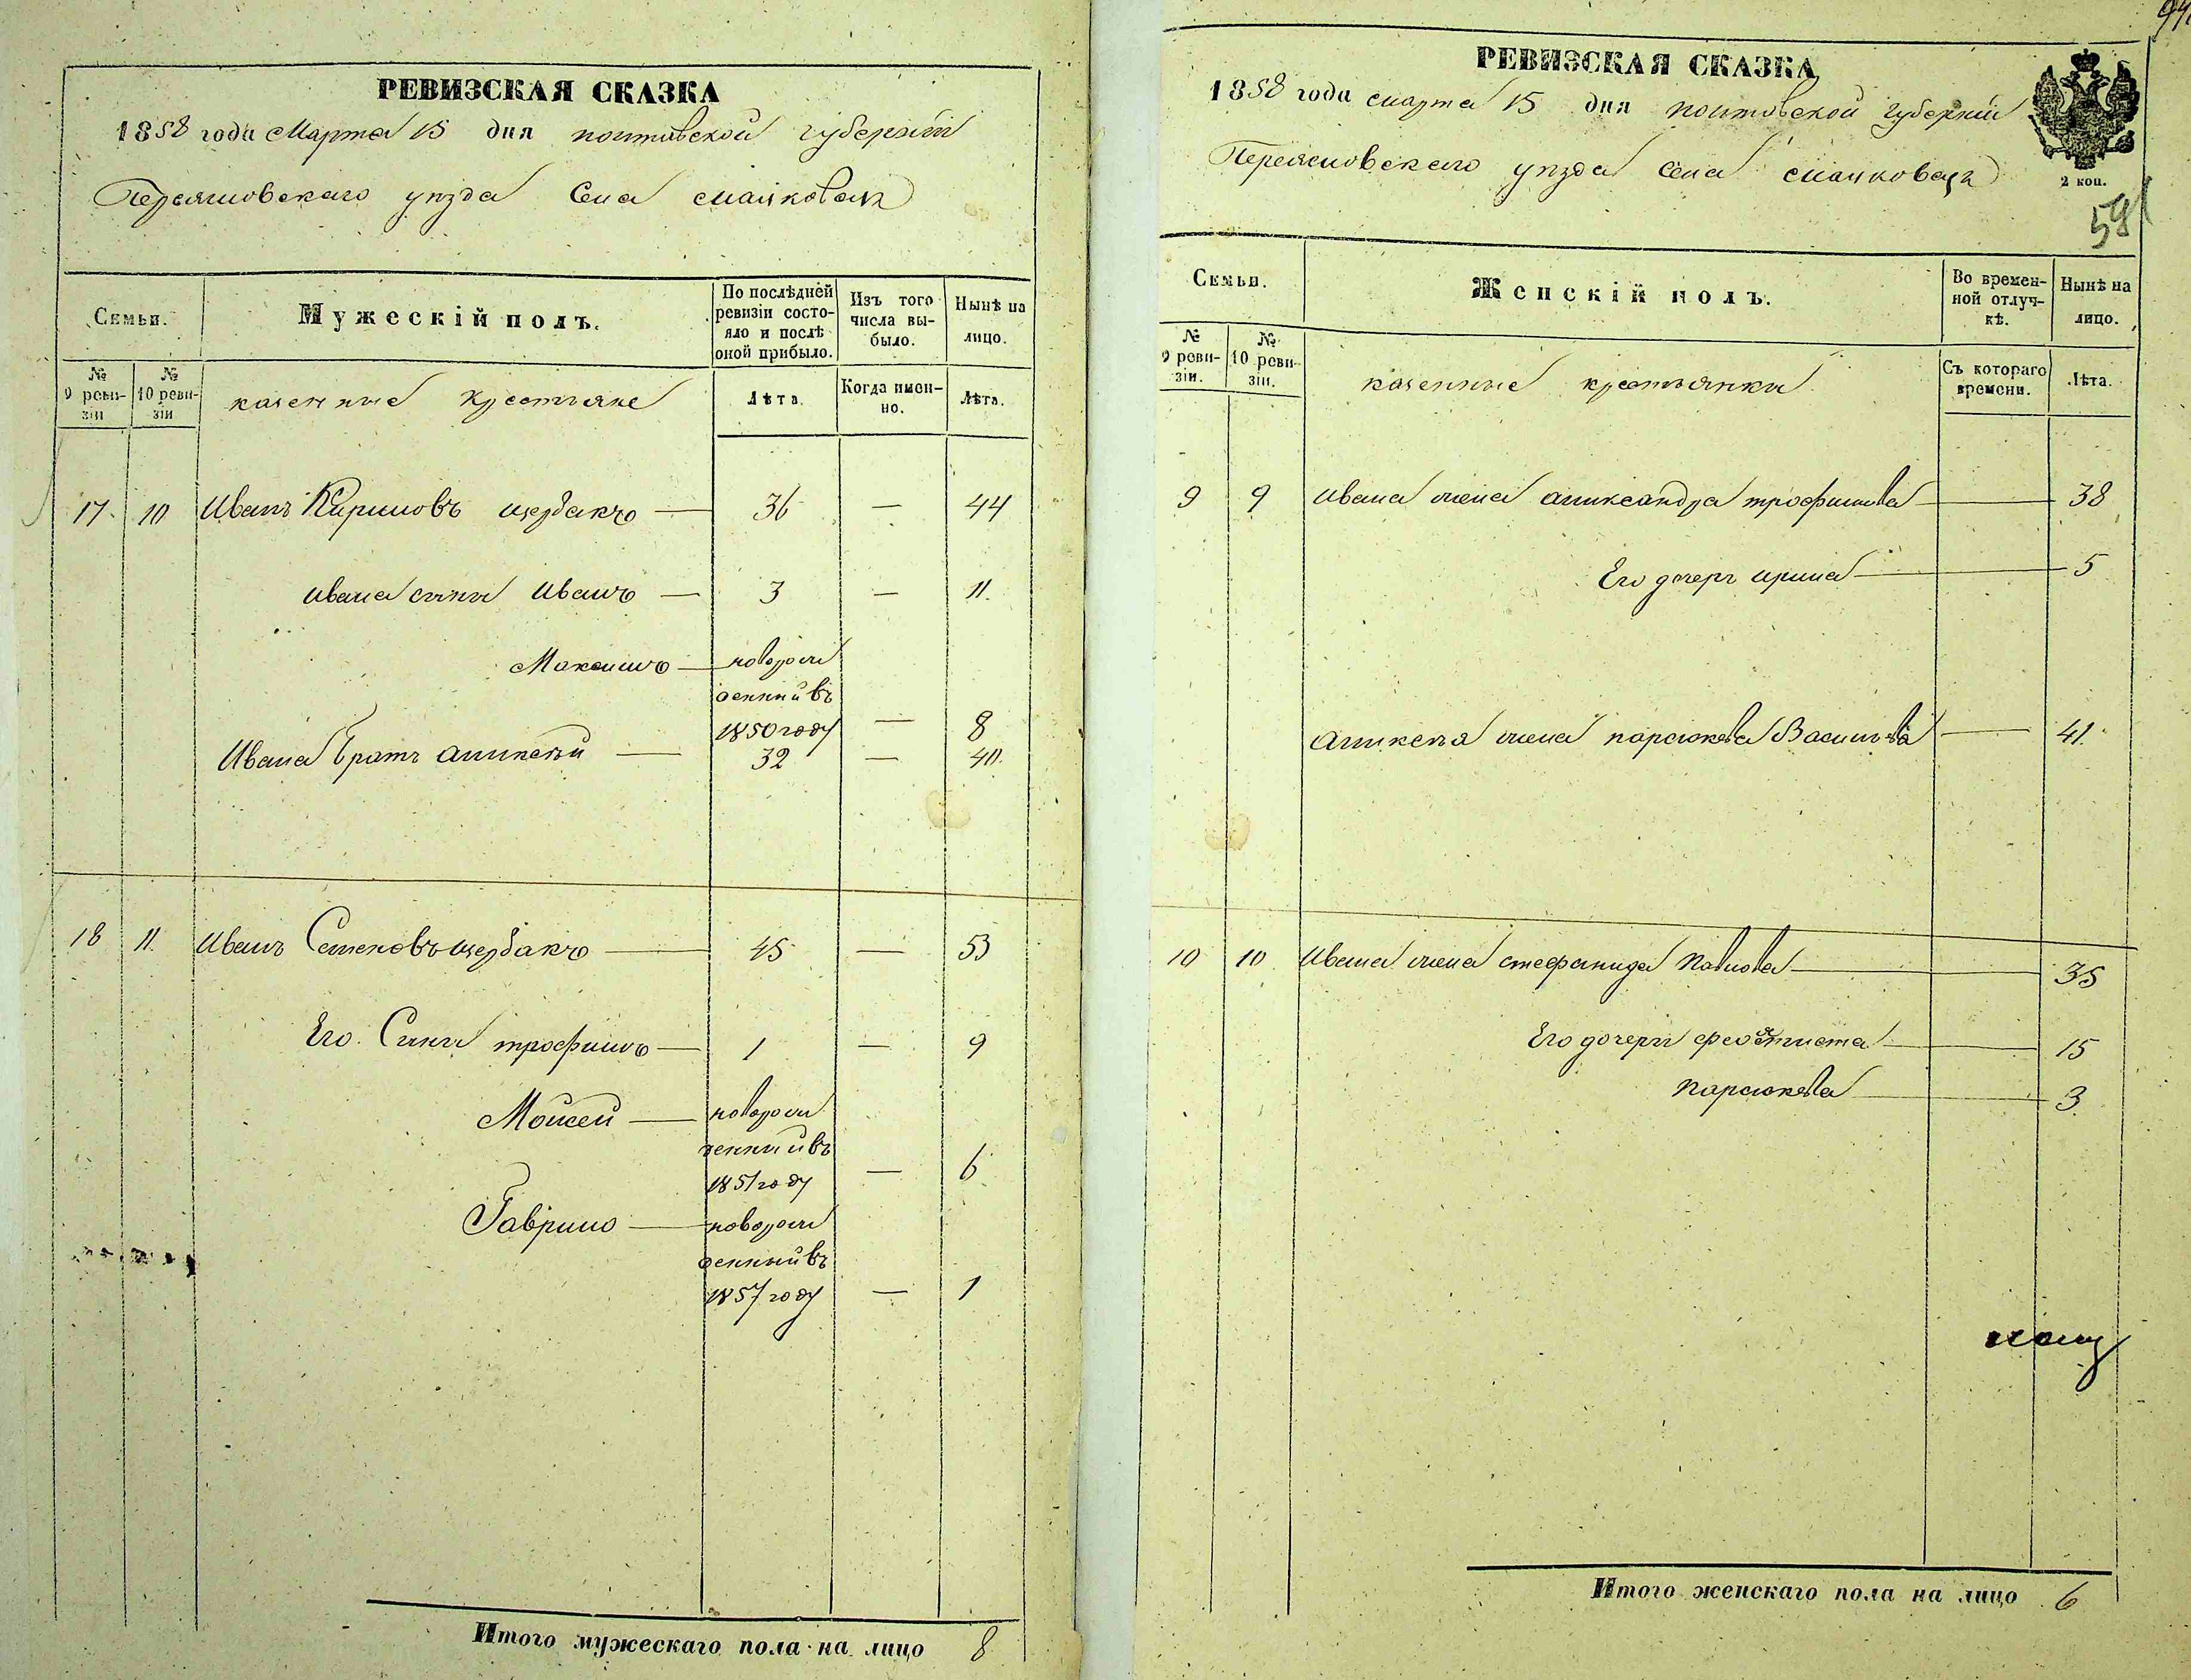 РЕВИЗСКАЯ СКАЗКА
1858 года Марта 15 дня полтавской губернии
Переясловскаго уѣзда Села
Семьи.
Мужескій полъ.
По послѣдней ревизіи состояло и послѣ оной прибыло.
Изъ того числа выбыло.
Нынѣ на лицо.
№ 9 ревизіи
№ 10 ревизіи
казенные крестьяне
Лѣта.
Когда именно.
Лѣта.
17 10 Иванъ Кириловъ щербакъ — 36 — 44
Ивана сыны Иванъ — 3 — 11.
Максимъ — новорож
денный въ
1850 году — 8
Ивана братъ аликсѣй — 32 — 40.
18 11. Иванъ Семеновъ щербакъ — 45 — 53
Его Сыны трофимъ — 1 — 9
Моисей — новорож
денный въ
1851 году — 6
Гаврило — новорож
денный въ
1857 году — 1
Итого мужескаго пола на лицо 8
РЕВИЗСКАЯ СКАЗКА
1858 года марта 15 дня полтовской губерніи
Переясловскаго уѣзда Села
2 коп.
59
Семьи.
Женскій полъ.
Во временной отлучкѣ.
Нынѣ на лицо.
№ 9 ревизіи.
№ 10 ревизіи.
казенные крестьянки
Съ котораго времени.
Лѣта.
9 9 Ивана жена аликсандра трофимова — 38
Его дочерь ирина — 5
Аликсѣя жена параскева Васильева — 41.
10 10 Ивана жена стефанида Павлова — 35
Его дочери феоктиста — 15
параскева — 3.
Итого женскаго пола на лицо 6